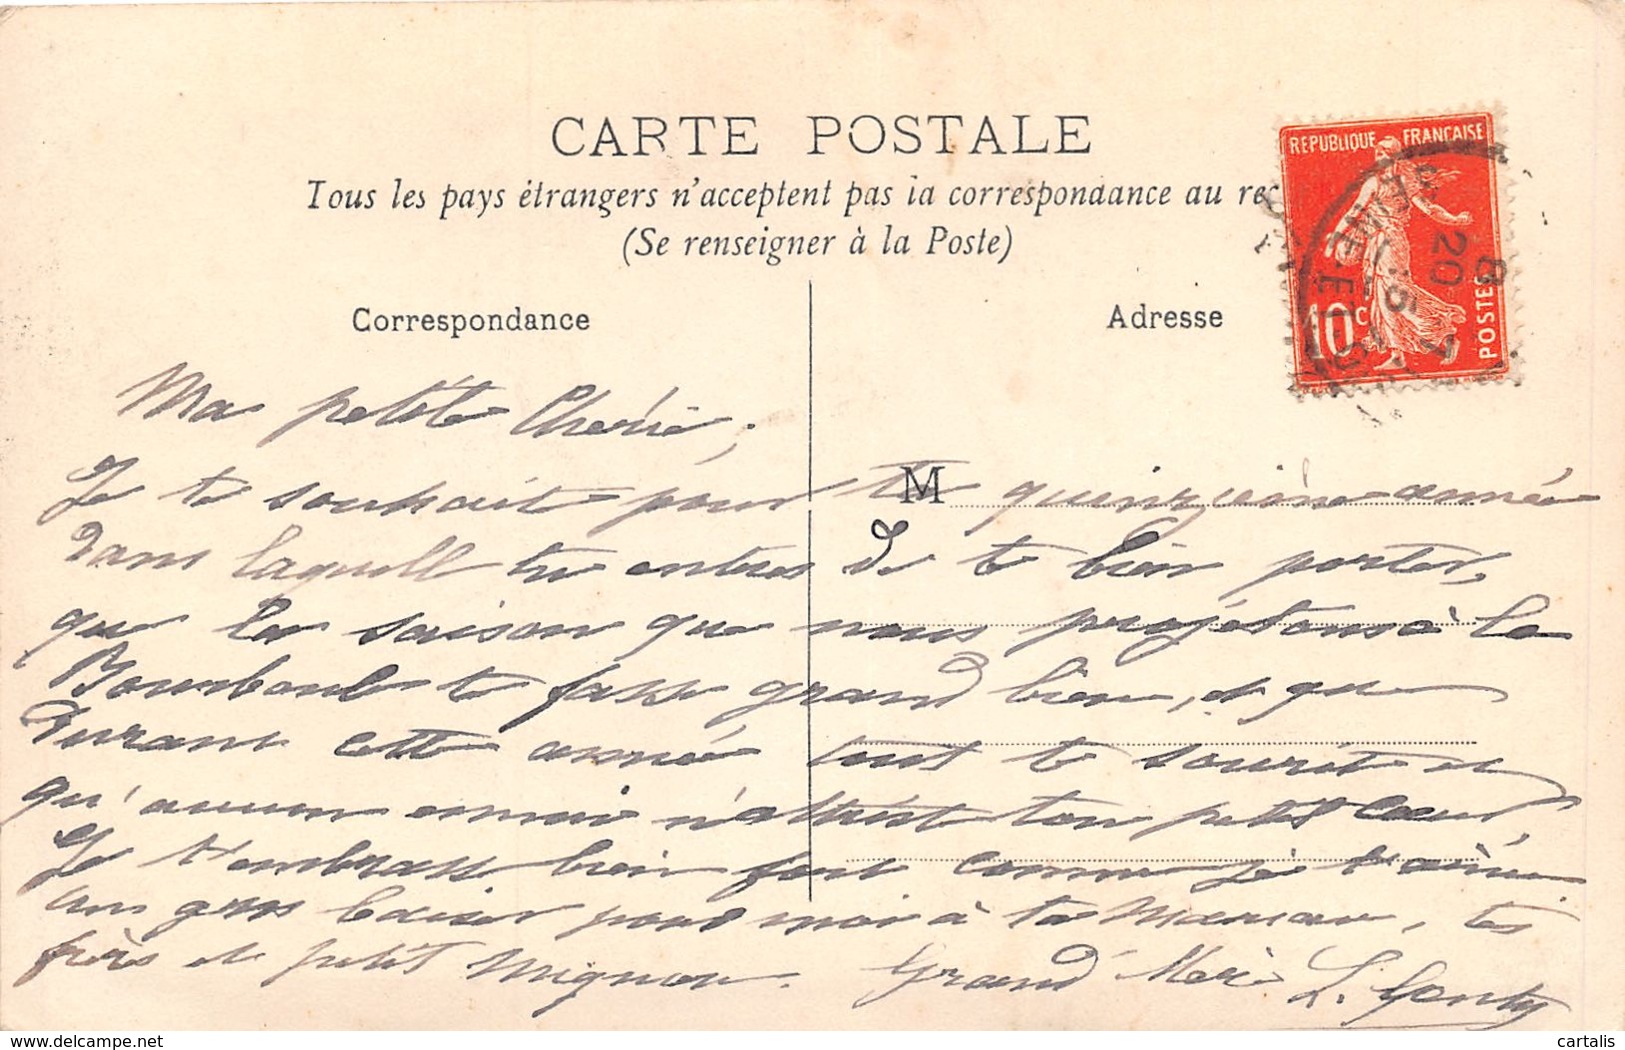 CARTE POSTALE
Tous les pays étrangers n'acceptent pas la correspondance au rec
(Se renseigner à la Poste)
Correspondance
Adresse
REPUBLIQUE FRANÇAISE
10c
POSTES
8
20
SEINE-ET-OISE
M
Ma petite Chérie,
Je te souhait pour ta quinzième année
dans laquell tu entres de te bien porter,
que la saison que nous projetons à la
Bourboule te fasse grand bien, et que
durant cette année tout te sourit et
qu'aucun ennui n'attrist ton petit cœur,
Je t'embrass bien fort comme je t'aime
un gros baiser pour moi à ta Maman, tes
frères et petit Mignon. Grand'Mère L.
delcampe.net
cartalis